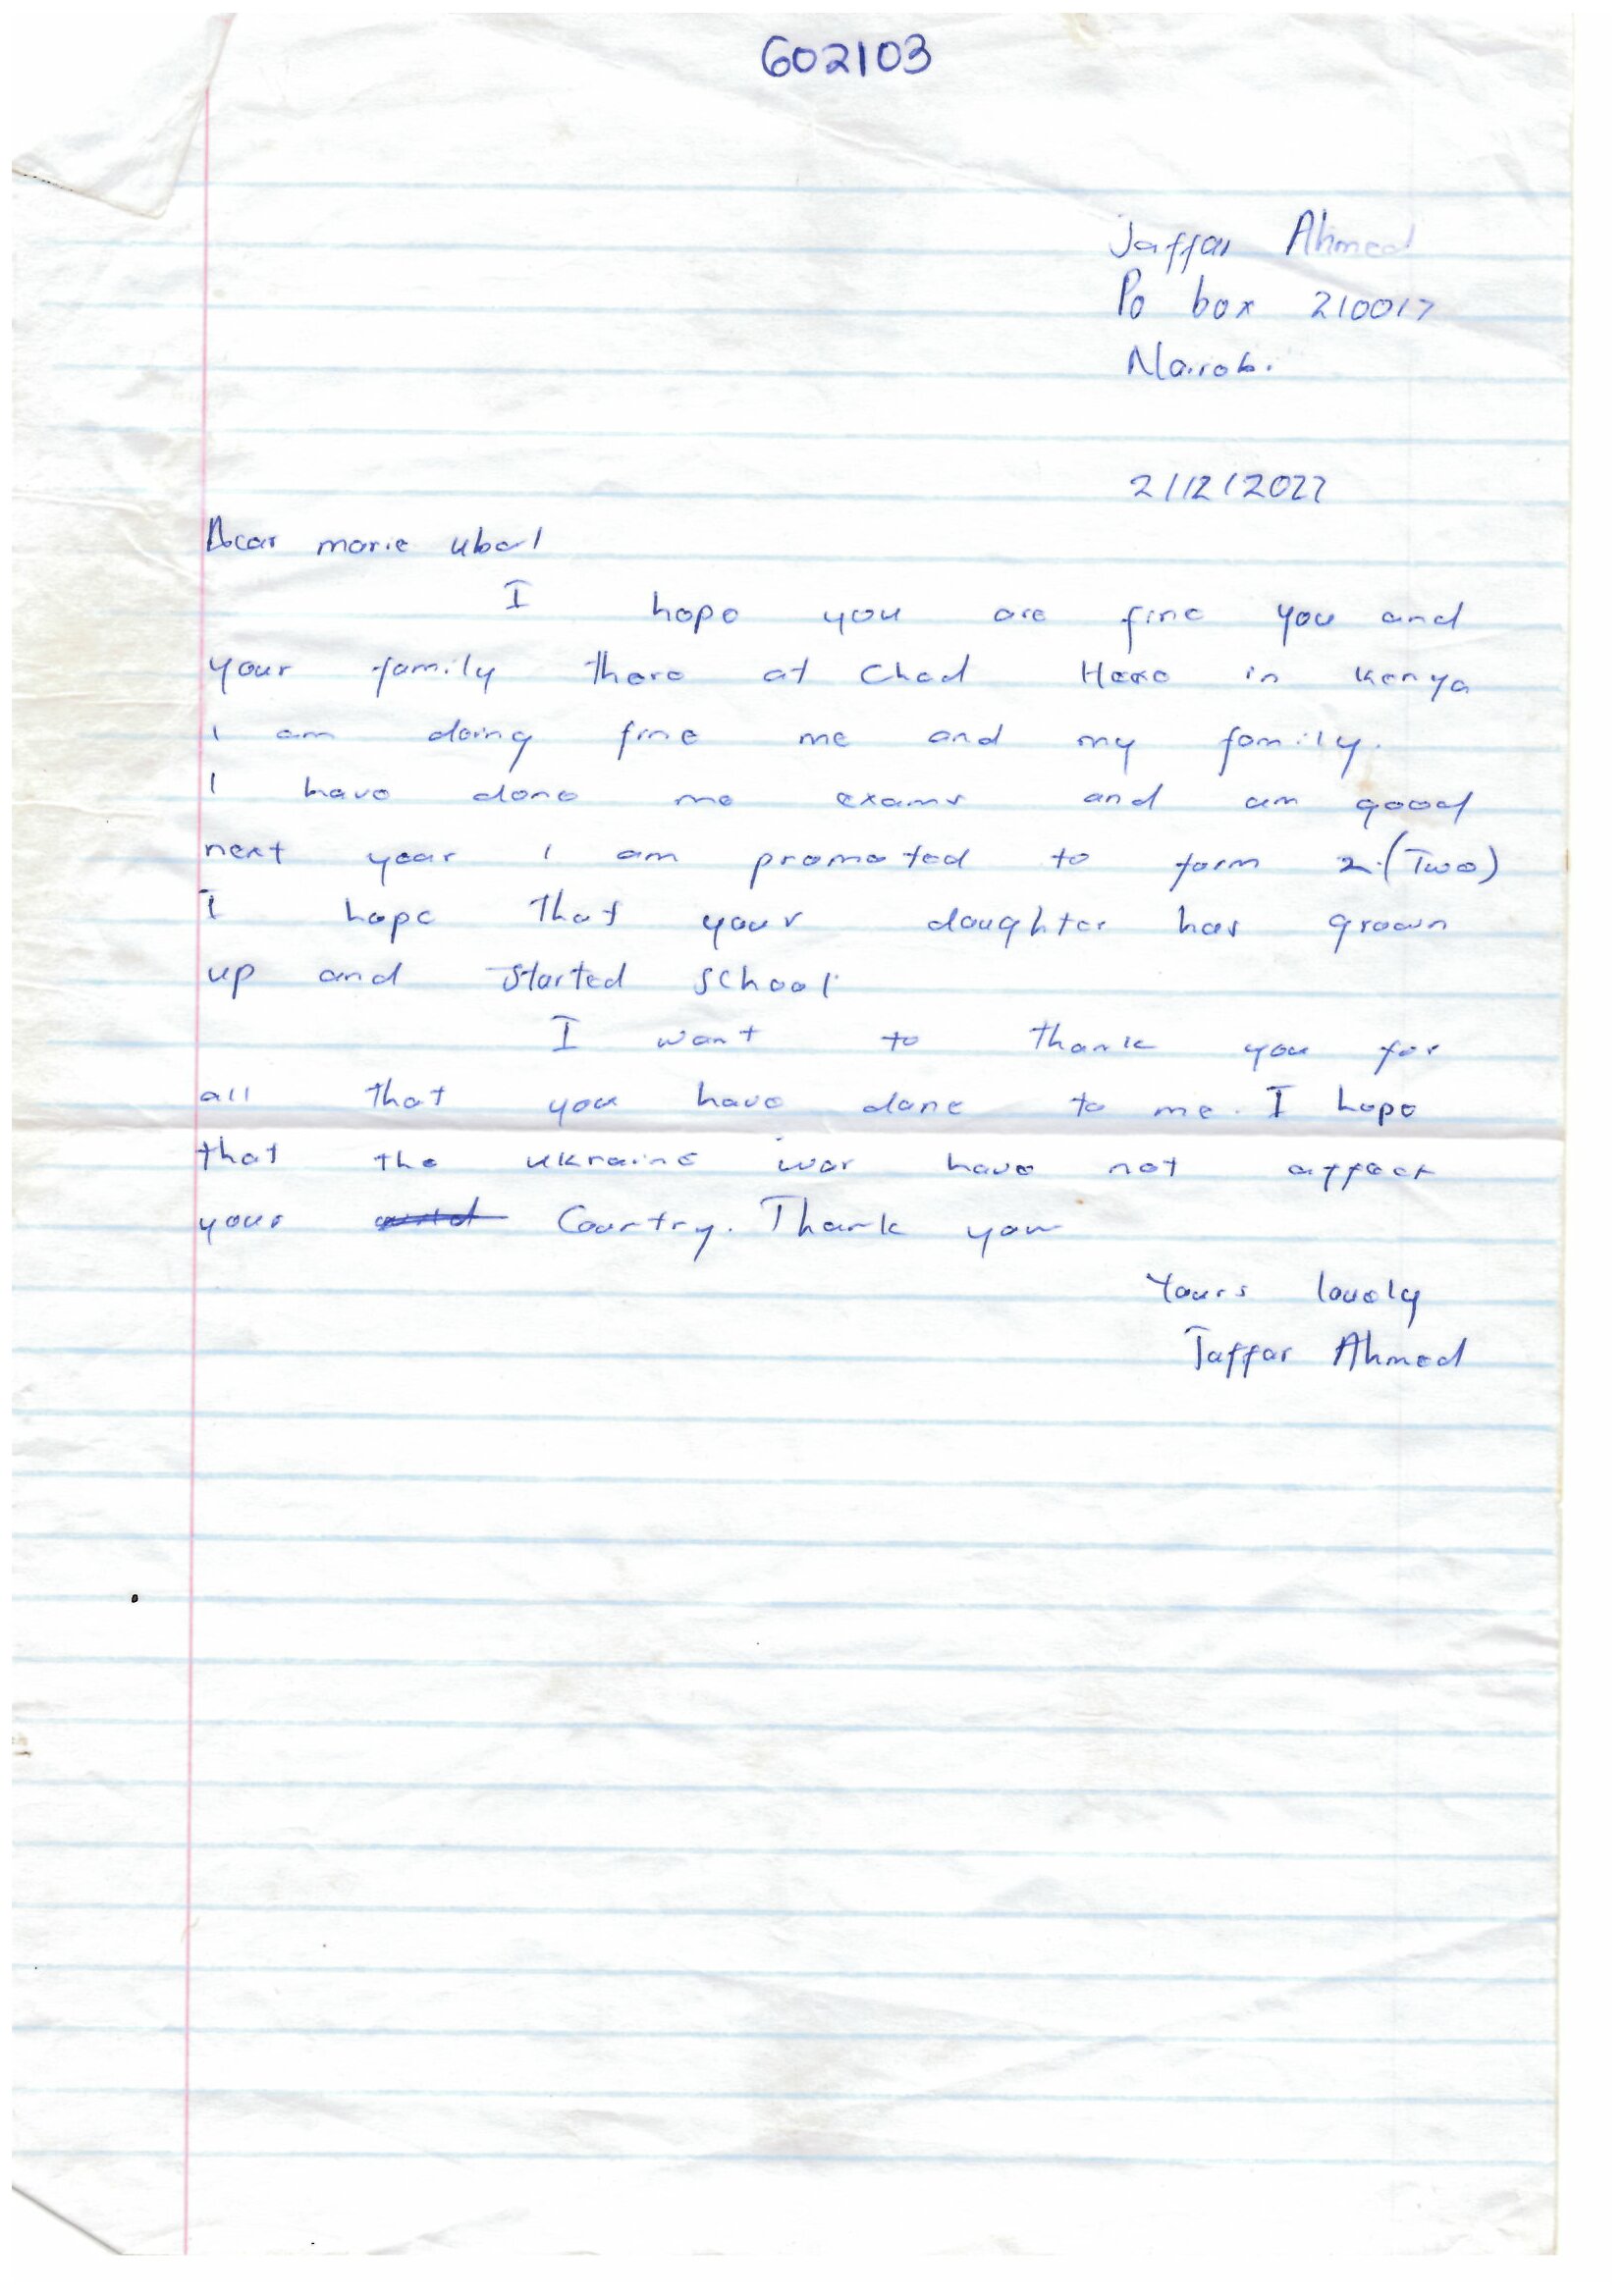 602103
Jaffar Ahmed
Po box 210017
Nairobi
2/12/2022
Dear marie ubal
I hope you are fine you and
your family there at Chad Here in Kenya
I am doing fine me and my family.
I have done me exams and am good
next year I am promoted to form 2 (Two)
I hope that your daughter has grown
up and started school
I want to thank you for
all that you have done to me. I hope
that the ukraine war have not affect
your Country. Thank you
Yours lovely
Jaffar Ahmed